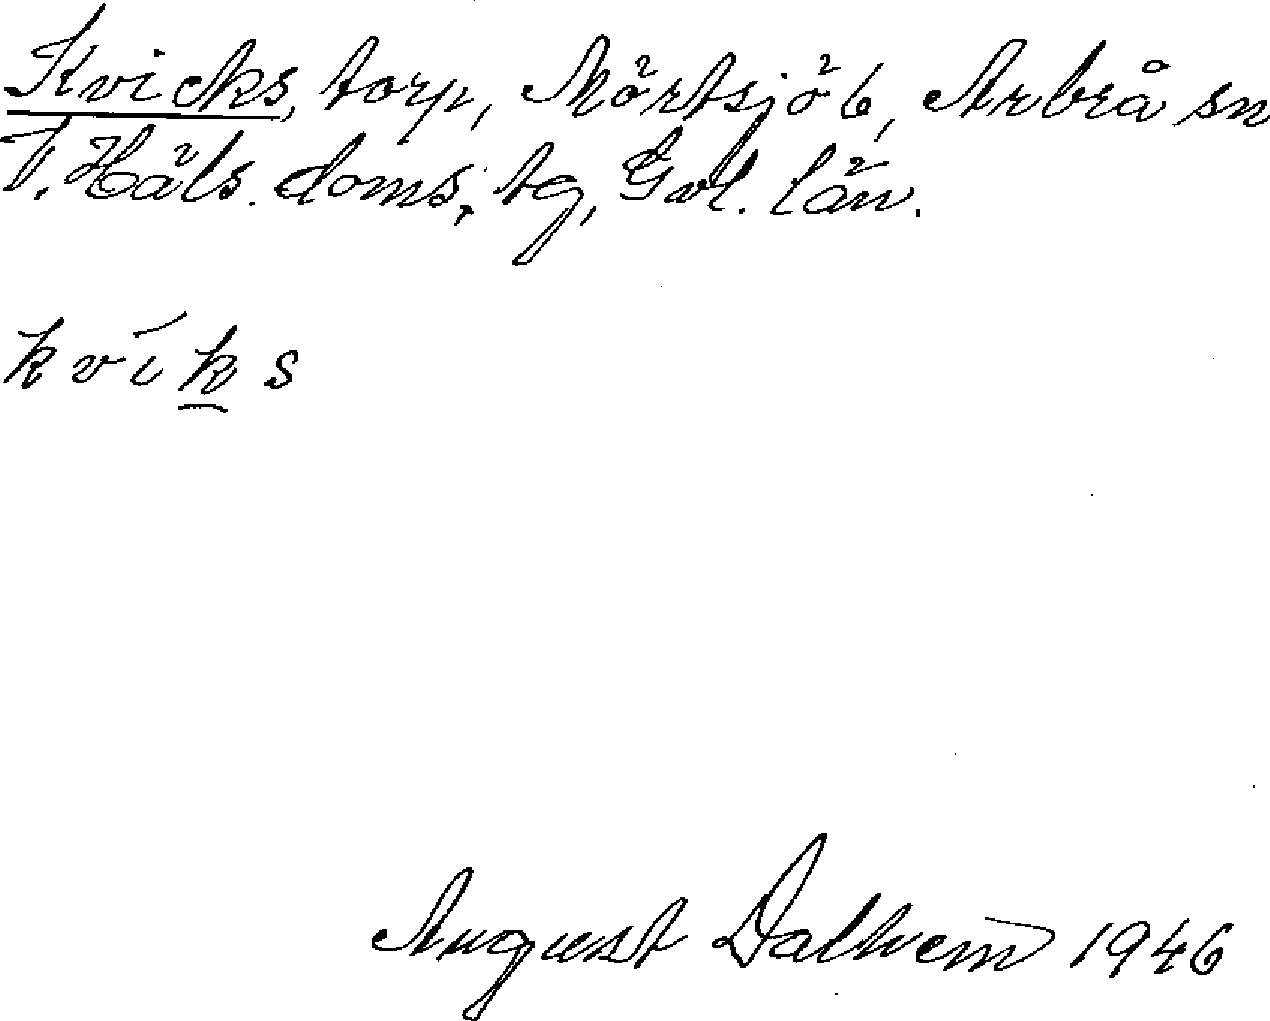 Kvicks, torp, Mörtsjö 6, Arbrå sn
V. Häls. doms. tg, Gvl. län.
kvíks
August Dalhem 1946